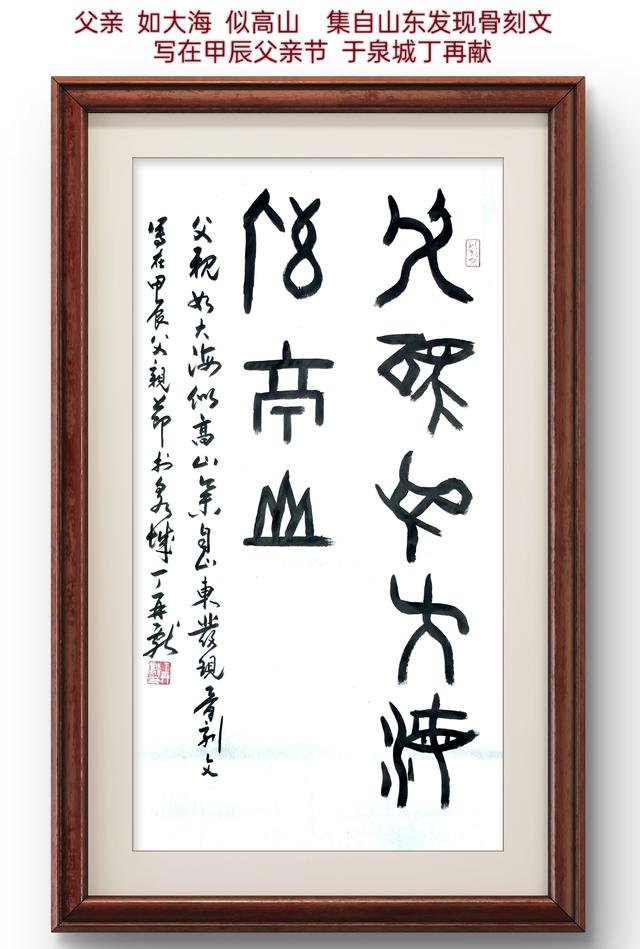 父亲 如大海 似高山 集自山东发现骨刻文
写在甲辰父亲节 于泉城丁再献
父親如大海
似高山
父親如大海似高山集自山東發現骨刻文
写在甲辰父親節於泉城丁再献